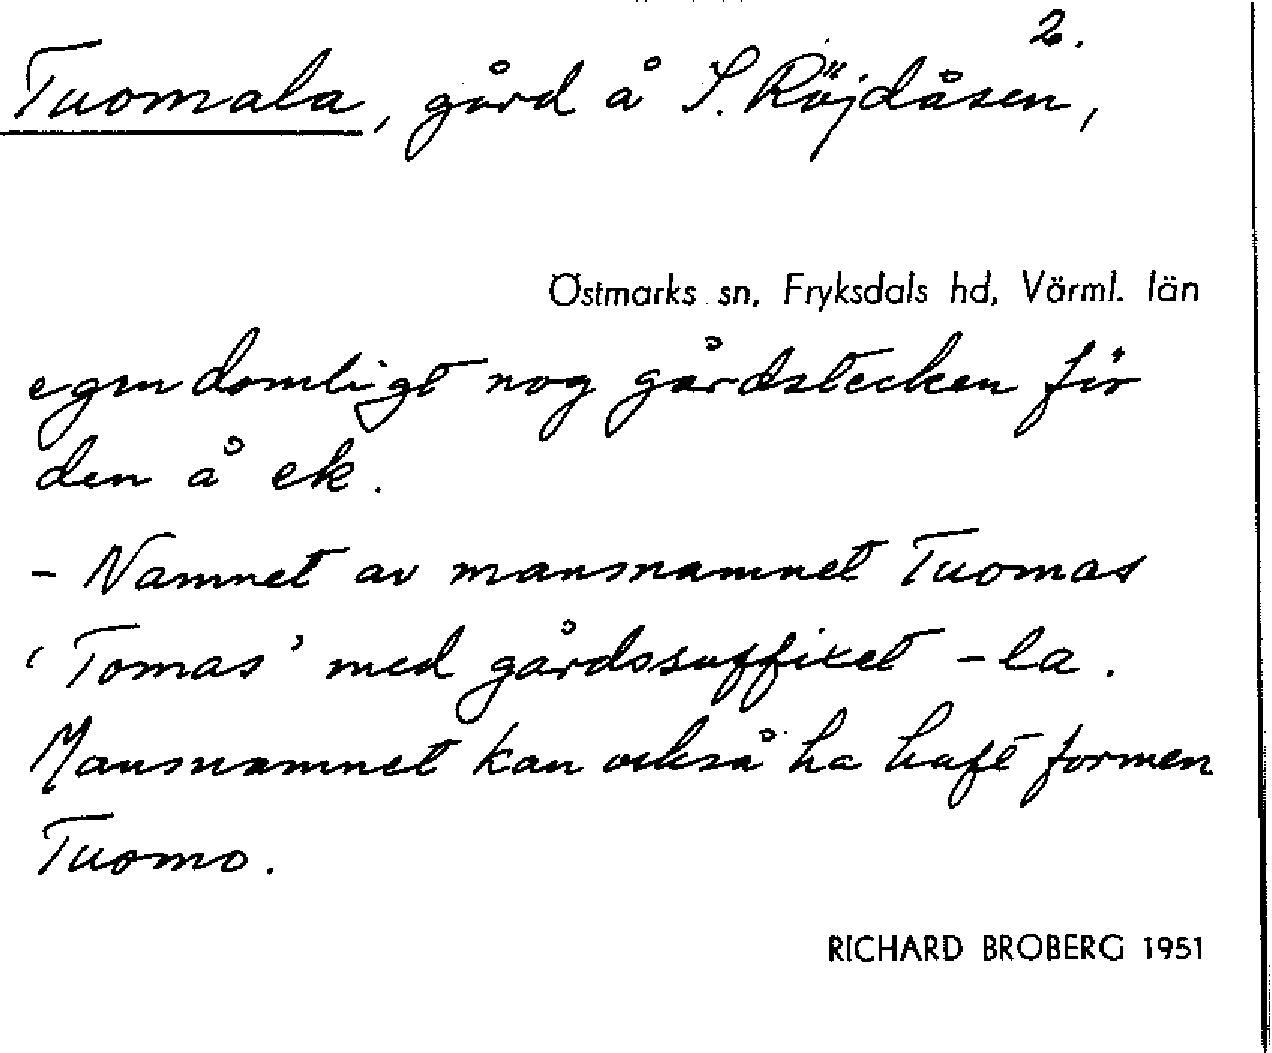 2.
Tuomala, gård å S. Röjdåsen,
Östmarks sn, Fryksdals hd, Värml. län
egendomligt nog gårdstecken för
den å ek.
- Namnet av mansnamnet Tuomas
'Tomas' med gårdssuffixet -la.
Mansnamnet kan också ha haft formen
Tuomo.
RICHARD BROBERG 1951